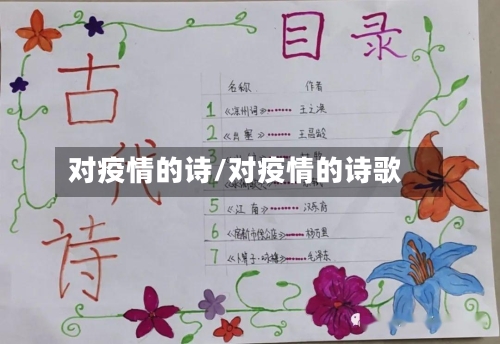 目录
古代诗
名称 作者
1 《凉州词》 王之涣
2 《出塞》 王昌龄
对疫情的诗/对疫情的诗歌
5 《江南》 汉乐府
6 《宿新市徐公店》 杨万里
7 《卜算子·咏梅》 毛泽东